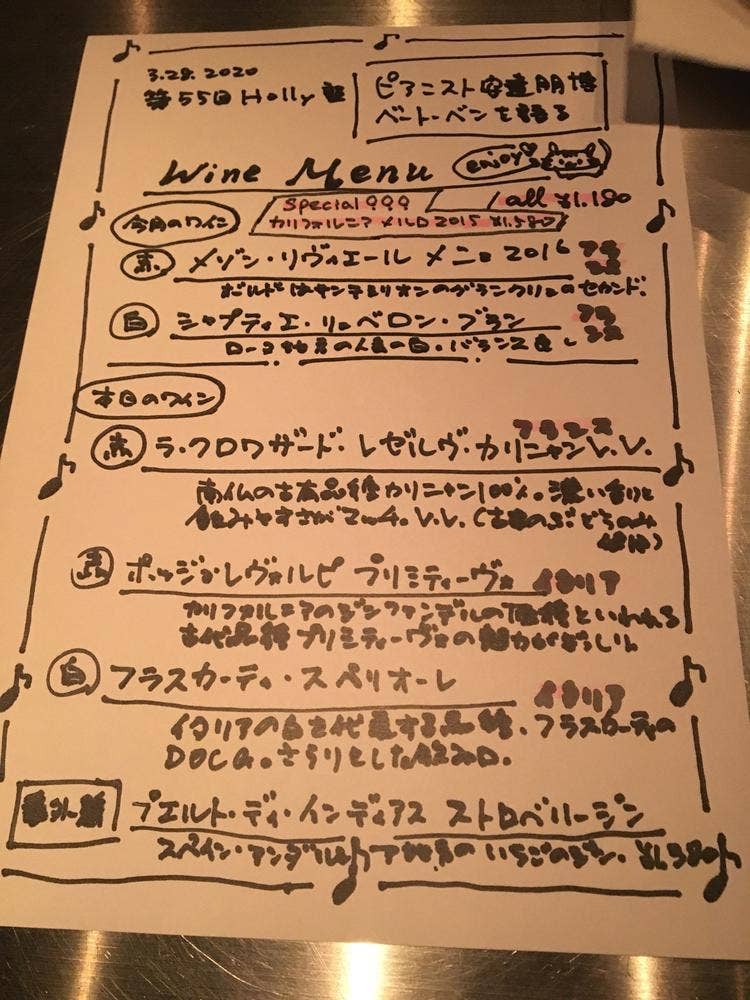 3.28.2020
第55回 Holly
ピアニスト 安達朋博
ベートーベンを語る
Wine Menu
ENJOY
Special 999
all ¥1.180
今月のワイン
カリフォルニア メルロ 2015 ¥1.580
赤 メゾン・リヴィエール メニョ 2016 フランス
ボルドーはサンテミリオンのグランクリュのセカンド.
白 シャプティエ・リュベロン・ブラン フランス
ローヌ地方の人気の白.バランス良し
本日のワイン
フランス
赤 ラ・クロワザード・レゼルヴ・カリニャンV.V.
南仏の古有品種カリニャン100%。濃い香りと
飲みやすさがマッチ.V.V.(古木のぶどうのみ
使用)
赤 ポッジョ・レヴォルピ プリミティーヴォ イタリア
カリフォルニアのジンファンデルの といわれる
古代品種プリミティーヴォの魅力がぎっしり
白 フラスカーティ・スペリオーレ イタリア
イタリアの白を代表する品種.フラスカーティの
DOCG.さらりとした飲み口.
番外編 プエルト・ディ・インディアス ストロベリージン
スペイン・アンダルシア地方のいちごのジン.¥1.380